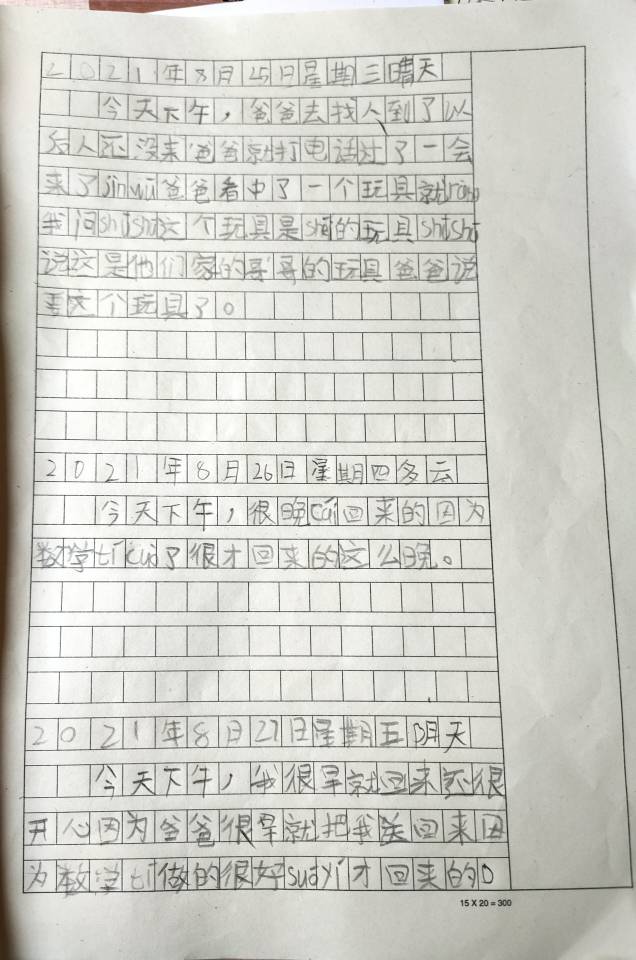 2021年8月25日星期三晴天
今天下午，爸爸去找人到了以
后人还没来爸爸就打电话过了一会
来了jinwu爸爸看中了一个玩具就rang
我问shushu这个玩具是shei的玩具shushu
说这是他们家的哥哥的玩具爸爸说
这个玩具了。
2021年8月26日星期四多云
今天下午，很晚cai回来的因为
数学ti cuo了很才回来的这么晚。
2021年8月27日星期五阴天
今天下午，我很早就回来还很
开心因为爸爸很早就把我送回来因
为数学ti做的很好suoyi才回来的。
15 X 20 = 300